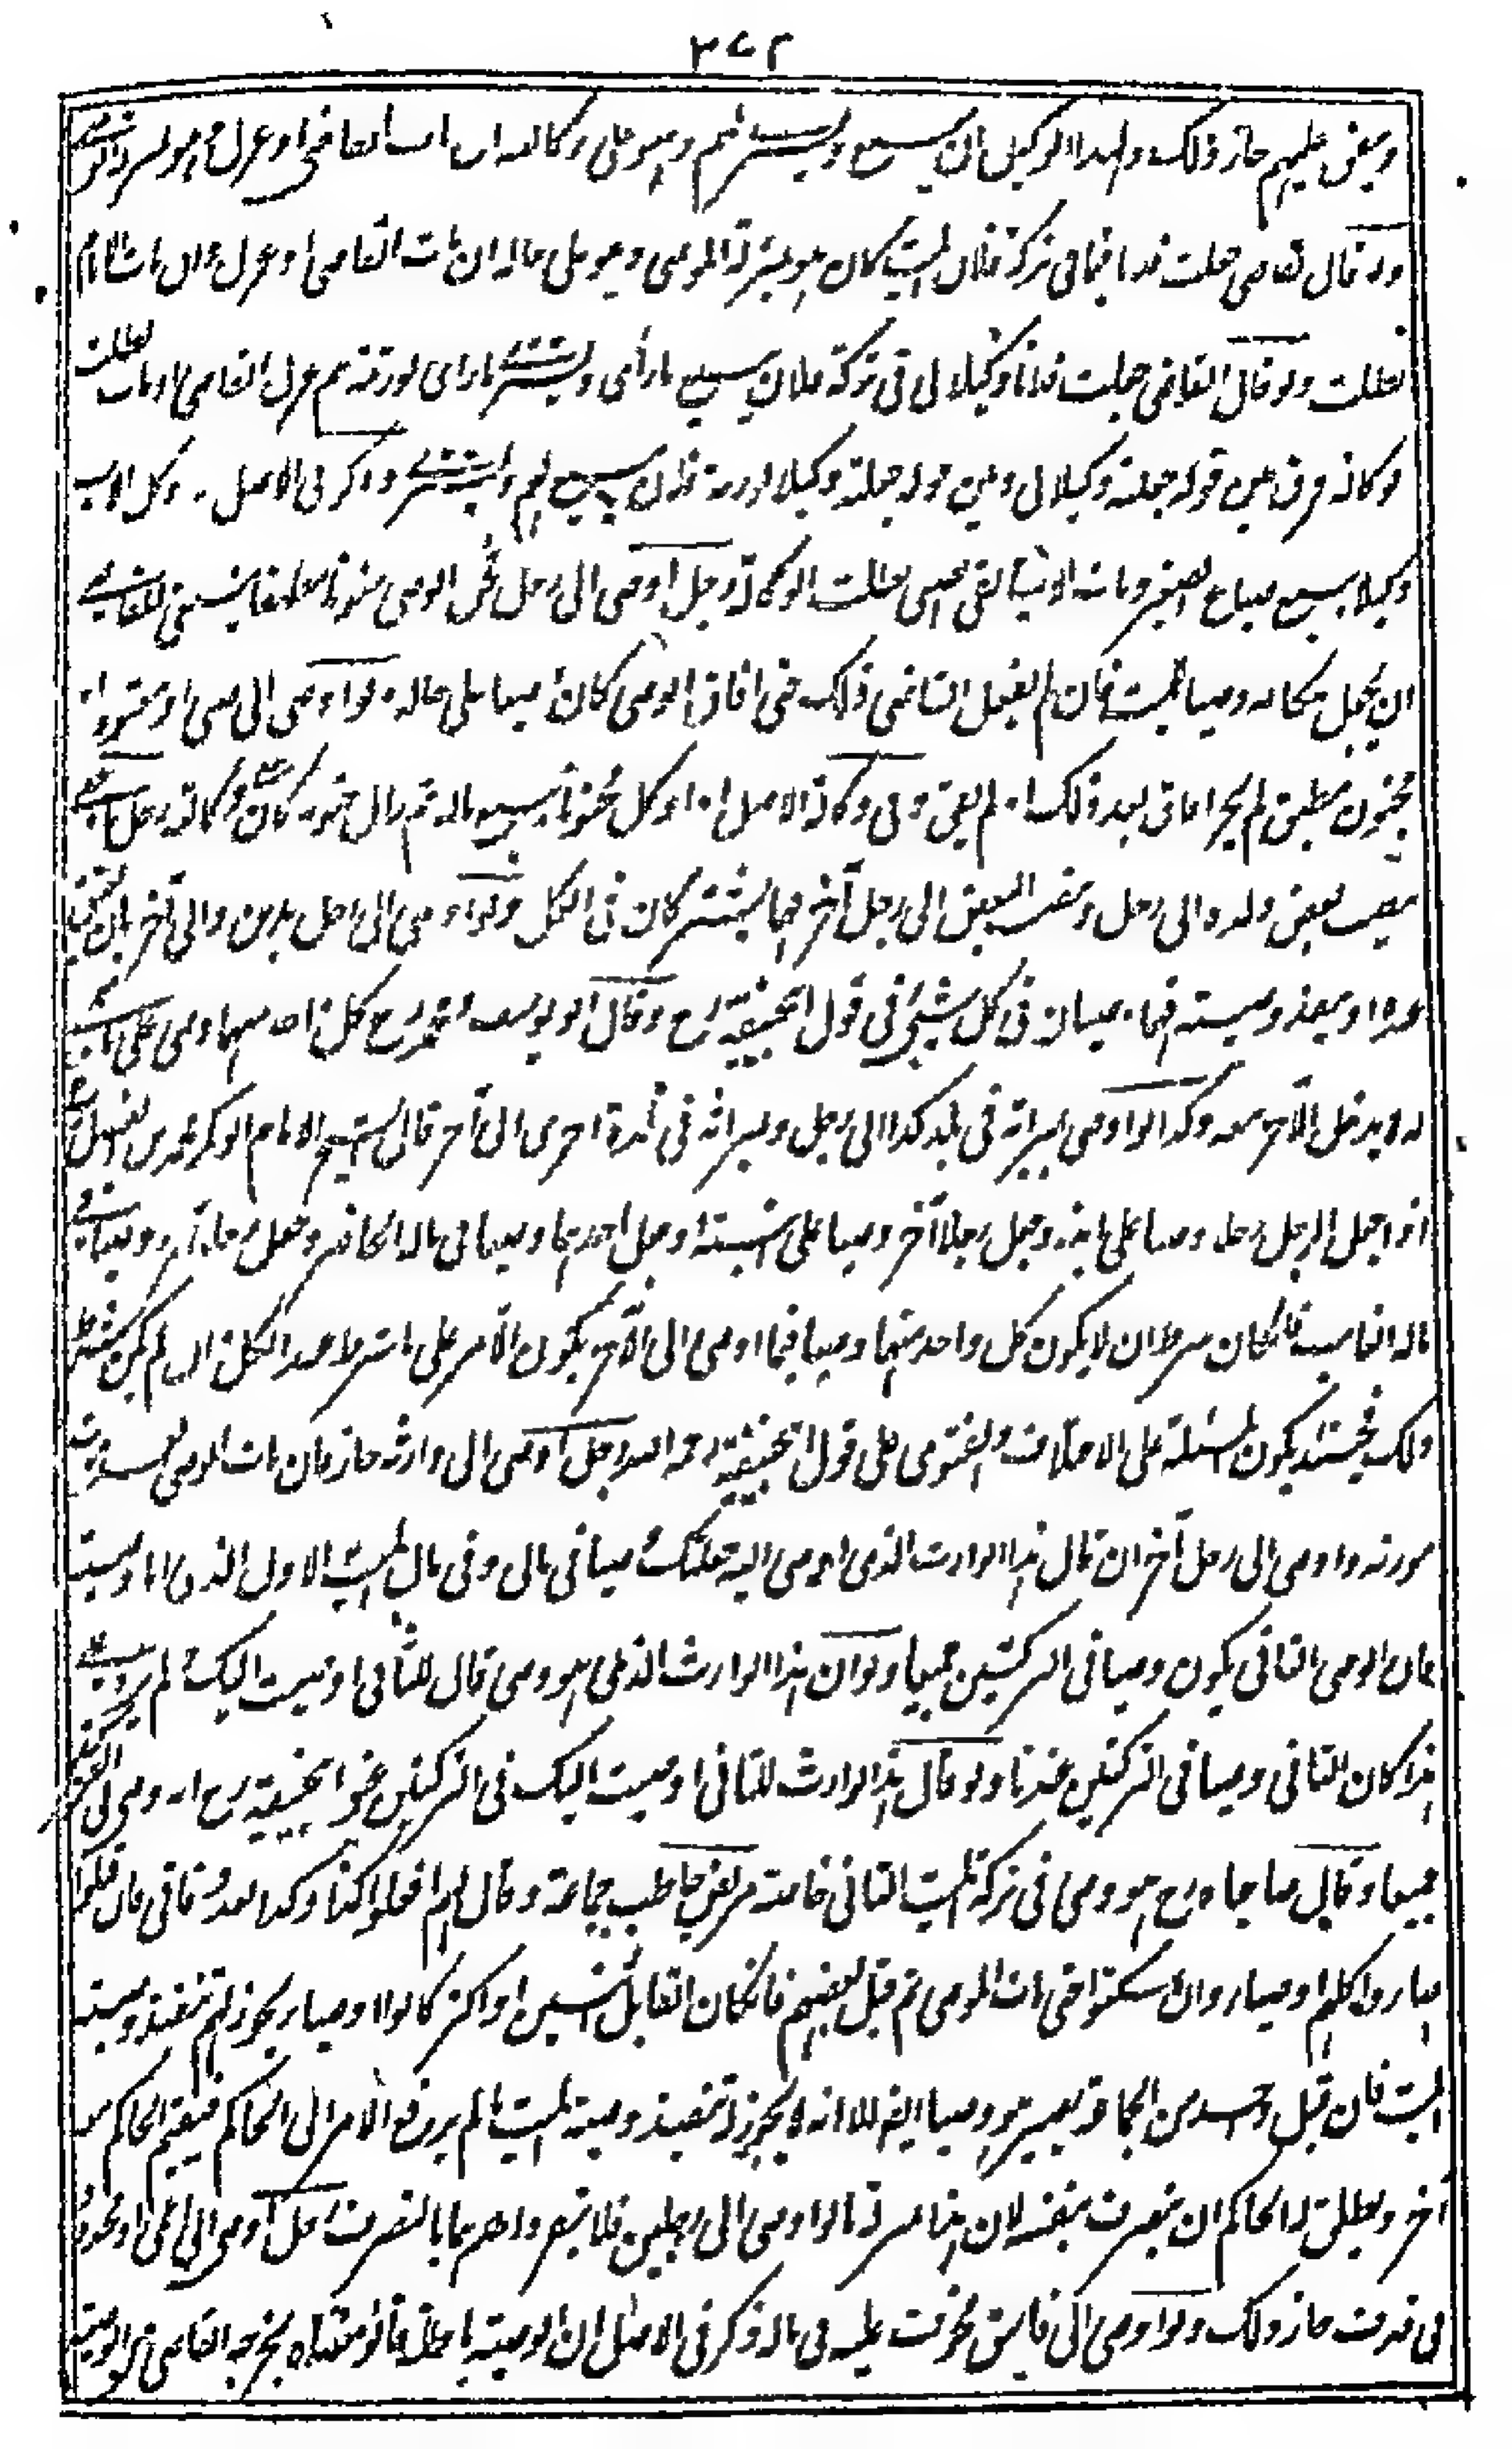 ٣٧٢
وينفق عليهم جاز ذلك ولهذا الوكيل ان يبيع ويشتري لهم وهو على وكالته ان مات القاضي او عزل
ولو قال القاضي جعلت فلانا قيما في تركة فلان الميت كان هو بمنزلة الوصي وهو على حاله ان مات القاضي او عزل وان
بطلت ولو قال القاضي جعلت فلانا وكيلا لي في تركة فلان يبيع ما رأى ويشتري ما رأى لورثته ثم عزل القاضي او مات بطلت
وكانه فرق بين قوله جعلته وكيلا لي وبين قوله جعلته وكيلا لورثة فلان يبيع لهم ويشتري وذكر في الاصل وكل الاب
وكيلا ببيع ضياع الصغير ومات الاب بقي الصبي بطلت الوكالة رجل اوصى الى رجل فجن الوصي جنونا مطبقا ينبغي للقاضي
ان يجعل مكانه وصيا للميت فان لم يفعل القاضي ذلك حتى افاق الوصي كان وصيا على حاله ولو اوصى الى صبي او معتوه او
مجنون مطبق لم يجز افاق بعد ذلك او لم يفق وفي وكالة الاصل اذا وكل مجنونا ببيع ماله ثم زال جنونه كان على وكالته رجل اوصى
بنصيب بعض ولده الى رجل ونصيب البعض الى رجل آخر فهما يشتركان في الكل ولو اوصى الى رجل بدين والى آخر بان يعتق
عبده او ينفذ وصيته فهما وصيان في كل شيء في قول ابي حنيفة رح وقال ابو يوسف ومحمد رح كل واحد منهما وصي على ما سمى
له ولا يدخل الآخر معه وكذا لو اوصى بميراثه في بلد كذا الى رجل وبميراثه في بلدة اخرى الى آخر قال الشيخ الامام ابو بكر محمد بن الفضل رح
اذا جعل الرجل رجلا وصيا على ابنه وجعل رجلا آخر وصيا على ابنته او جعل احدهما وصيا في ماله الحاضر وجعل رجلا آخر وصيا في
ماله الغائب فان كان شرط ان لا يكون كل واحد منهما وصيا فيما اوصى الى الآخر يكون الامر على ما شرط عند الكل وان لم يكن شرط
ذلك فحينئذ يكون المسئلة على الاختلاف والفتوى على قول ابي حنيفة رحمه الله رجل اوصى الى وارثه جاز فان مات الوصي بعد موت
مورثه واوصى الى رجل آخر ان قال هذا الوارث الذي اوصى اليه جعلتك وصيا في مالي وفي مال الميت الاول الذي انا وصيته
فان الوصي الثاني يكون وصيا في التركتين جميعا ولو ان هذا الوارث الذي هو وصي قال للثاني اوصيت اليك لم يزد على
هذا كان الثاني وصيا في التركتين عندنا ولو قال هذا الوارث للثاني اوصيت اليك في التركتين عن ابي حنيفة رح انه وصي في التركتين
جميعا وقال صاحباه رح هو وصي في تركة الميت الثاني خاصة مريض خاطب جماعة وقال لهم افعلوا كذا وكذا بعد وفاتي فان قبلوا
صاروا كلهم اوصياء وان سكتوا حتى مات الموصي ثم قبل بعضهم فان كان القابل اثنين او اكثر كانوا اوصياء يجوز لهم تنفيذ وصية
الميت فان قبل واحد من الجماعة يصير هو وصيا ايضا الا انه لا يجوز له تنفيذ وصية الميت ما لم يرفع الامر الى الحاكم فيقيم الحاكم معه
آخر ويطلق له الحاكم ان يتصرف بنفسه لان هذا بمنزلة ما لو اوصى الى رجلين فلا ينفرد احدهما بالتصرف رجل اوصى الى اعمى او محدود
في قذف جاز ذلك ولو اوصى الى فاسق مخوف عليه في ماله ذكر في الاصل ان الوصية باطلة قالوا معناه يخرجه القاضي من الوصية